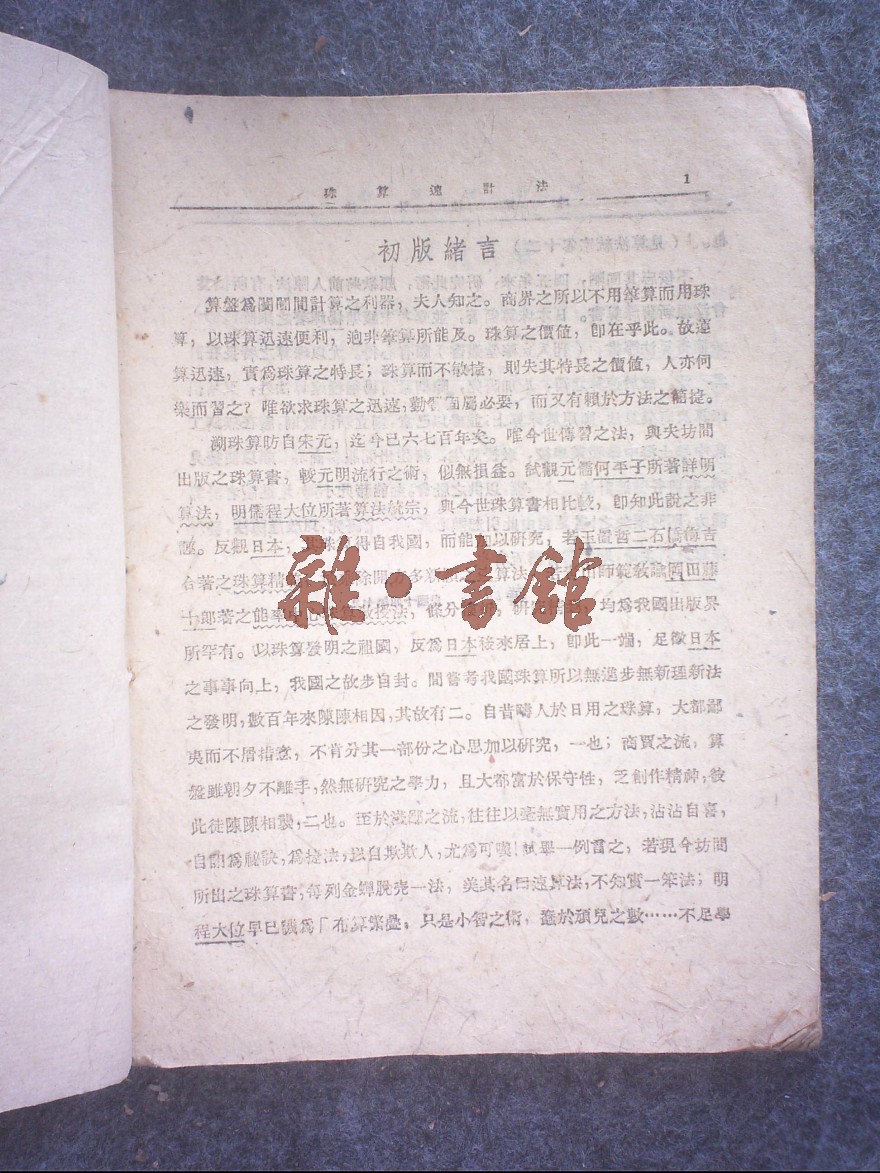 珠算速計法 1
初版緒言
算盤爲闤闠間計算之利器，夫人知之。商界之所以不用筆算而用珠
算，以珠算迅速便利，逈非筆算所能及。珠算之價値，卽在乎此。故運
算迅速，實爲珠算之特長；珠算而不敏捷，則失其特長之價値，人亦何
樂而習之？唯欲求珠算之迅速，勤習固屬必要，而又有賴於方法之簡捷。
溯珠算昉自宋元，迄今已六七百年矣。唯今世傳習之法，與夫坊間
出版之珠算書，較元明流行之術，似無損益。試觀元儒何平子所著詳明
算法，明儒程大位所著算法統宗，與今世珠算書相比較，卽知此說之非
誣。反觀日本，其珠 得自我國，而能加以研究，若 哲二石
合著之珠算精 除 多新 算法 師範敎諭岡田藤
十郎著之能率 法，條分 ，均爲我國出版界
所罕有。以珠算發明之祖國，反爲日本後來居上，卽此一端，足徵日本
之事事向上，我國之故步自封。間嘗考我國珠算所以無進步無新理新法
之發明，數百年來陳陳相因，其故有二。自昔疇人於日用之珠算，大都鄙
夷而不屑措意，不肯分其一部份之心思加以研究，一也；商賈之流，算
盤雖朝夕不離手，然無研究之學力，且大都富於保守性，乏創作精神，彼
此徒陳陳相襲，二也。至於淺鄙之流，往往以毫無實用之方法，沾沾自喜，
自詡爲祕訣，爲捷法，以自欺欺人，尤爲可嘆！試舉一例言之，若現今坊間
所出之珠算書，每列金蟬脫壳一法，美其名曰速算法，不知實一笨法；明
程大位早已譏爲「布算繁疊，只是小智之術，蠢於頑兒之數……不足學
雜·書館